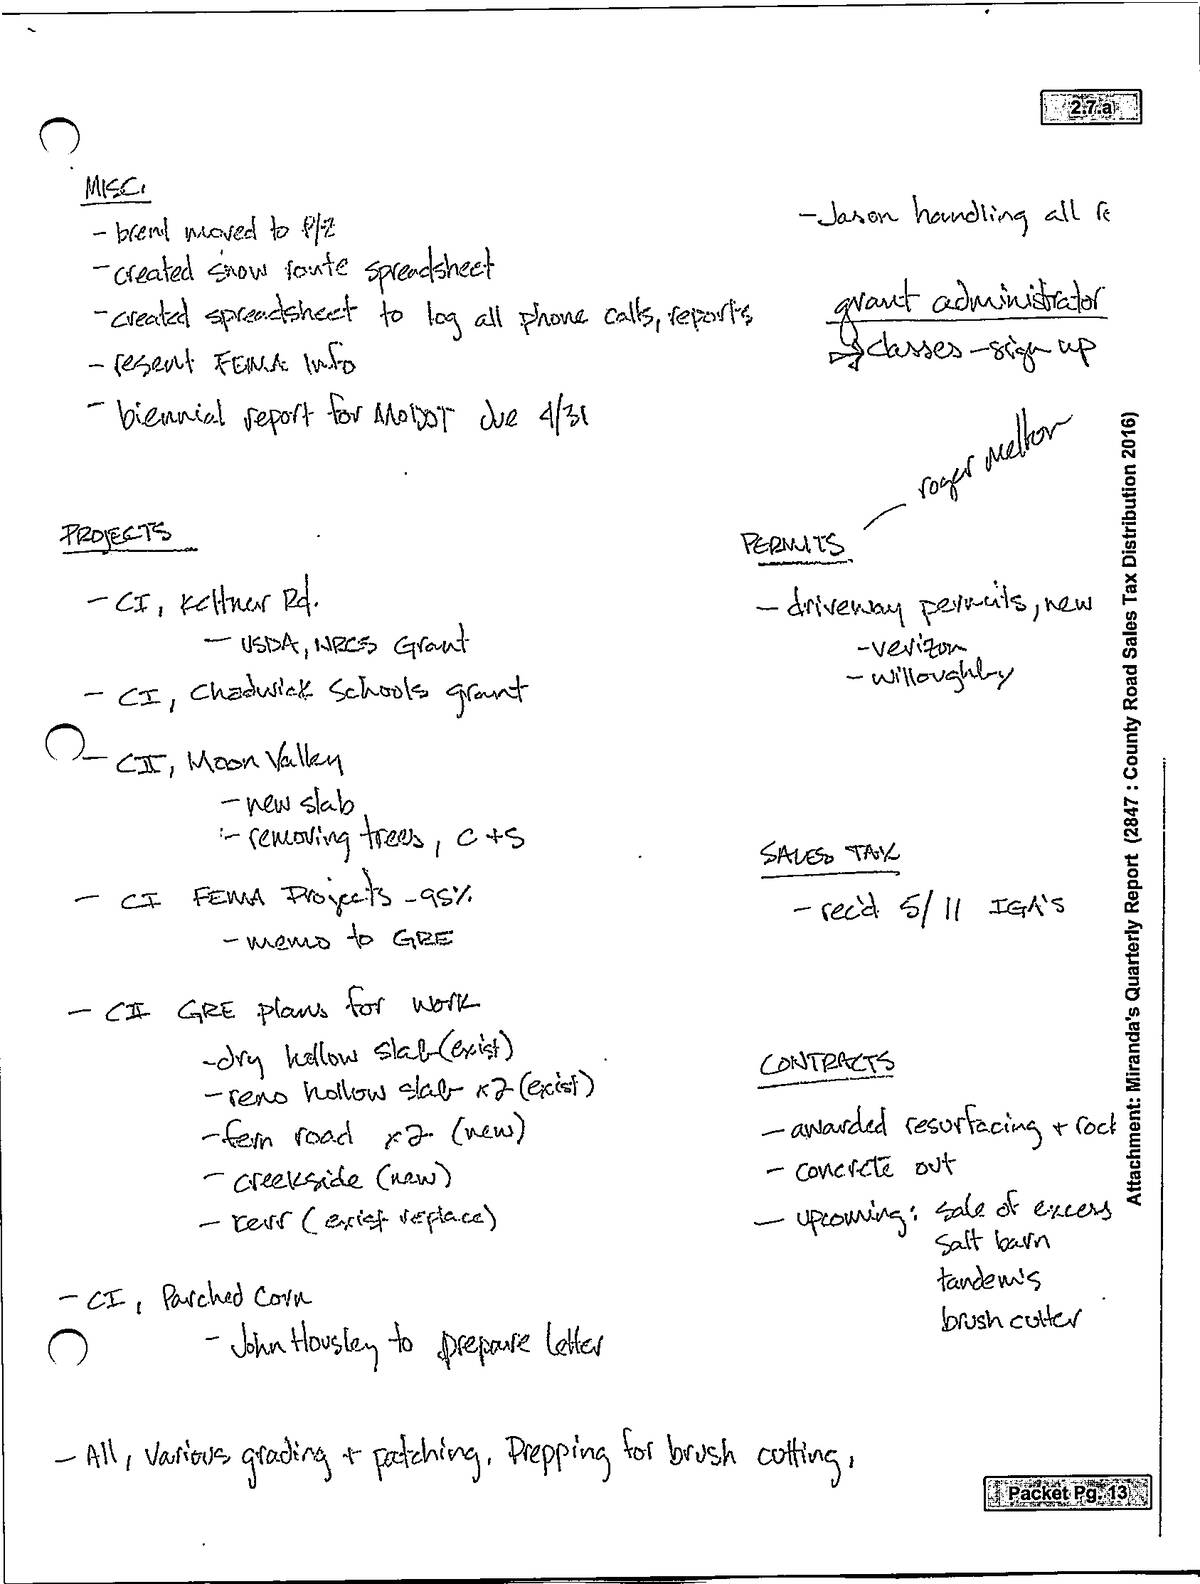 2.7.a
MISC.
- brent moved to P/Z
- created snow route spreadsheet
- created spreadsheet to log all phone calls, reports
- resent FEMA Info
- biennial report for MODOT due 4/31
- Jason handling all re
grant administrator
classes - sign up
PROJECTS
- CI, Keltner Rd.
- USDA, NRCS Grant
- CI, Chadwick Schools grant
- CII, Moon Valley
- new slab
- removing trees, C + S
- CI FEMA Projects - 95%
- memo to GRE
- CII GRE plans for work
- dry hollow slab (exist)
- reno hollow slab x2 (exist)
- fern road x2 (new)
- creekside (new)
- kerr (exist replace)
- CI, Parched Corn
- John Housley to prepare letter
- All, various grading + patching, Prepping for brush cutting,
roger melton
PERMITS
- driveway permits, new
- verizon
- willoughby
SALES TAX
- rec'd 5/11 IGA's
CONTRACTS
- awarded resurfacing + rock
- concrete out
- upcoming: sale of excess
salt barn
tandems
brush cutter
Attachment: Miranda's Quarterly Report (2847 : County Road Sales Tax Distribution 2016)
Packet Pg. 13